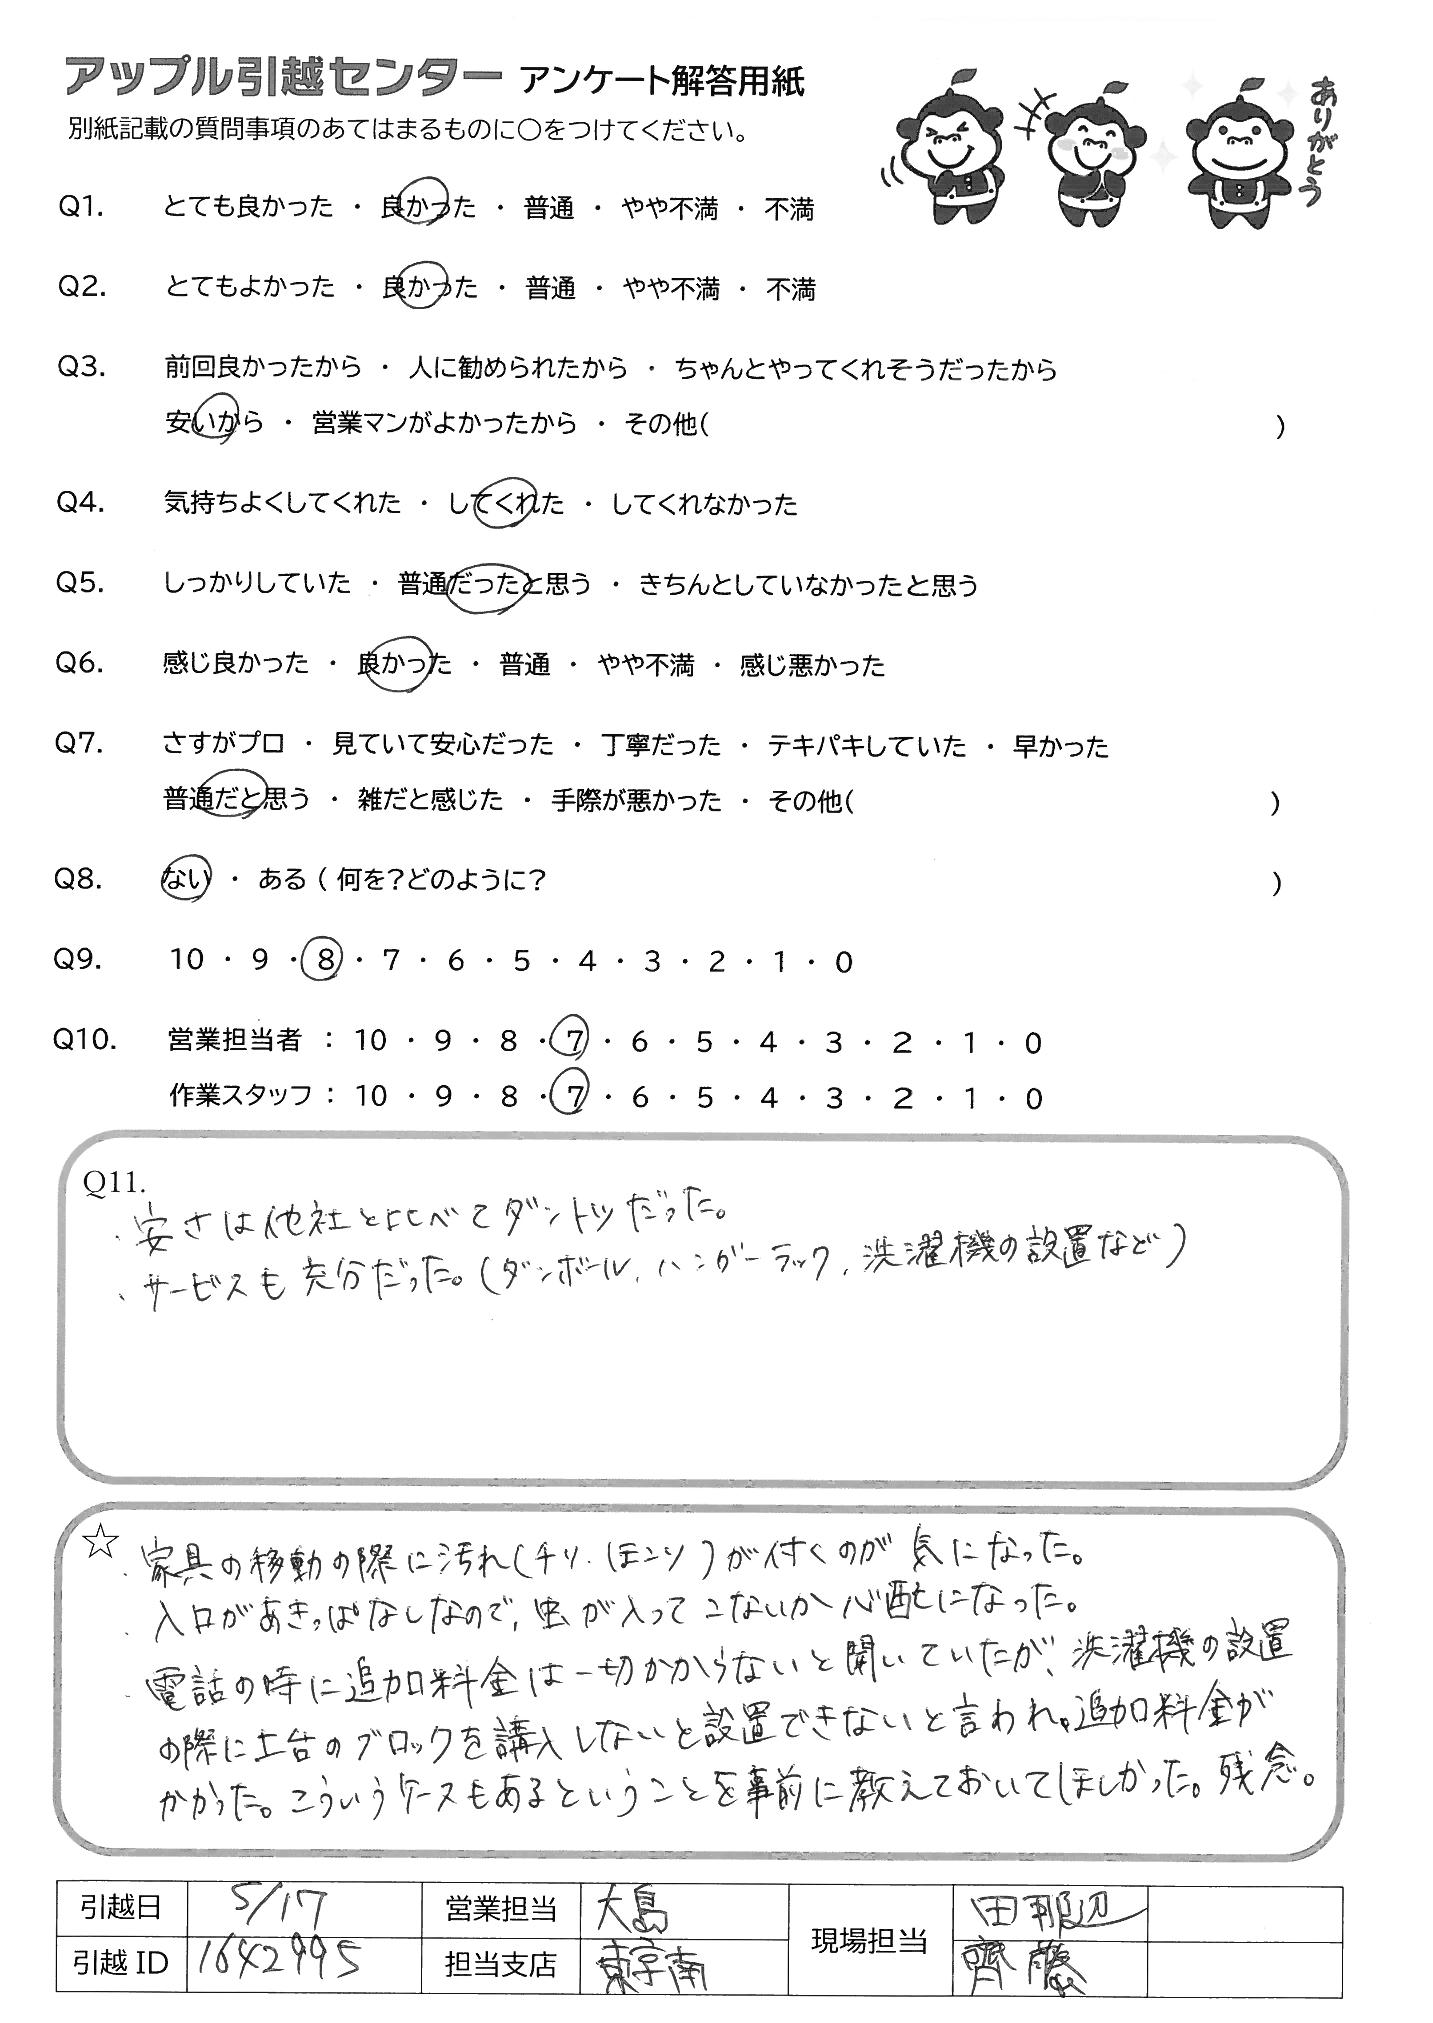 アップル引越センター アンケート解答用紙
別紙記載の質問事項のあてはまるものに〇をつけてください。
ありがとう
Q1. とても良かった ・ 良かった ・ 普通 ・ やや不満 ・ 不満
Q2. とてもよかった ・ 良かった ・ 普通 ・ やや不満 ・ 不満
Q3. 前回良かったから ・ 人に勧められたから ・ ちゃんとやってくれそうだったから
安いから ・ 営業マンがよかったから ・ その他( )
Q4. 気持ちよくしてくれた ・ してくれた ・ してくれなかった
Q5. しっかりしていた ・ 普通だったと思う ・ きちんとしていなかったと思う
Q6. 感じ良かった ・ 良かった ・ 普通 ・ やや不満 ・ 感じ悪かった
Q7. さすがプロ ・ 見ていて安心だった ・ 丁寧だった ・ テキパキしていた ・ 早かった
普通だと思う ・ 雑だと感じた ・ 手際が悪かった ・ その他( )
Q8. ない ・ ある ( 何を?どのように? )
Q9. 10 ・ 9 ・ 8 ・ 7 ・ 6 ・ 5 ・ 4 ・ 3 ・ 2 ・ 1 ・ 0
Q10. 営業担当者 : 10 ・ 9 ・ 8 ・ 7 ・ 6 ・ 5 ・ 4 ・ 3 ・ 2 ・ 1 ・ 0
作業スタッフ : 10 ・ 9 ・ 8 ・ 7 ・ 6 ・ 5 ・ 4 ・ 3 ・ 2 ・ 1 ・ 0
Q11.
・安さは他社と比べてダントツだった。
・サービスも充分だった。(ダンボール、ハンガーラック、洗濯機の設置など)
☆ ・家具の移動の際に汚れ(チリ・ホコリ)が付くのが気になった。
・入口があきっぱなしなので、虫が入ってこないか心配になった。
・電話の時に追加料金は一切かからないと聞いていたが、洗濯機の設置
の際に土台のブロックを購入しないと設置できないと言われ。追加料金が
かかった。こういうケースもあるということを事前に教えておいてほしかった。残念。
引越日 5/17 営業担当 大島 現場担当 田那辺
引越ID 1642995 担当支店 東京南 齊藤